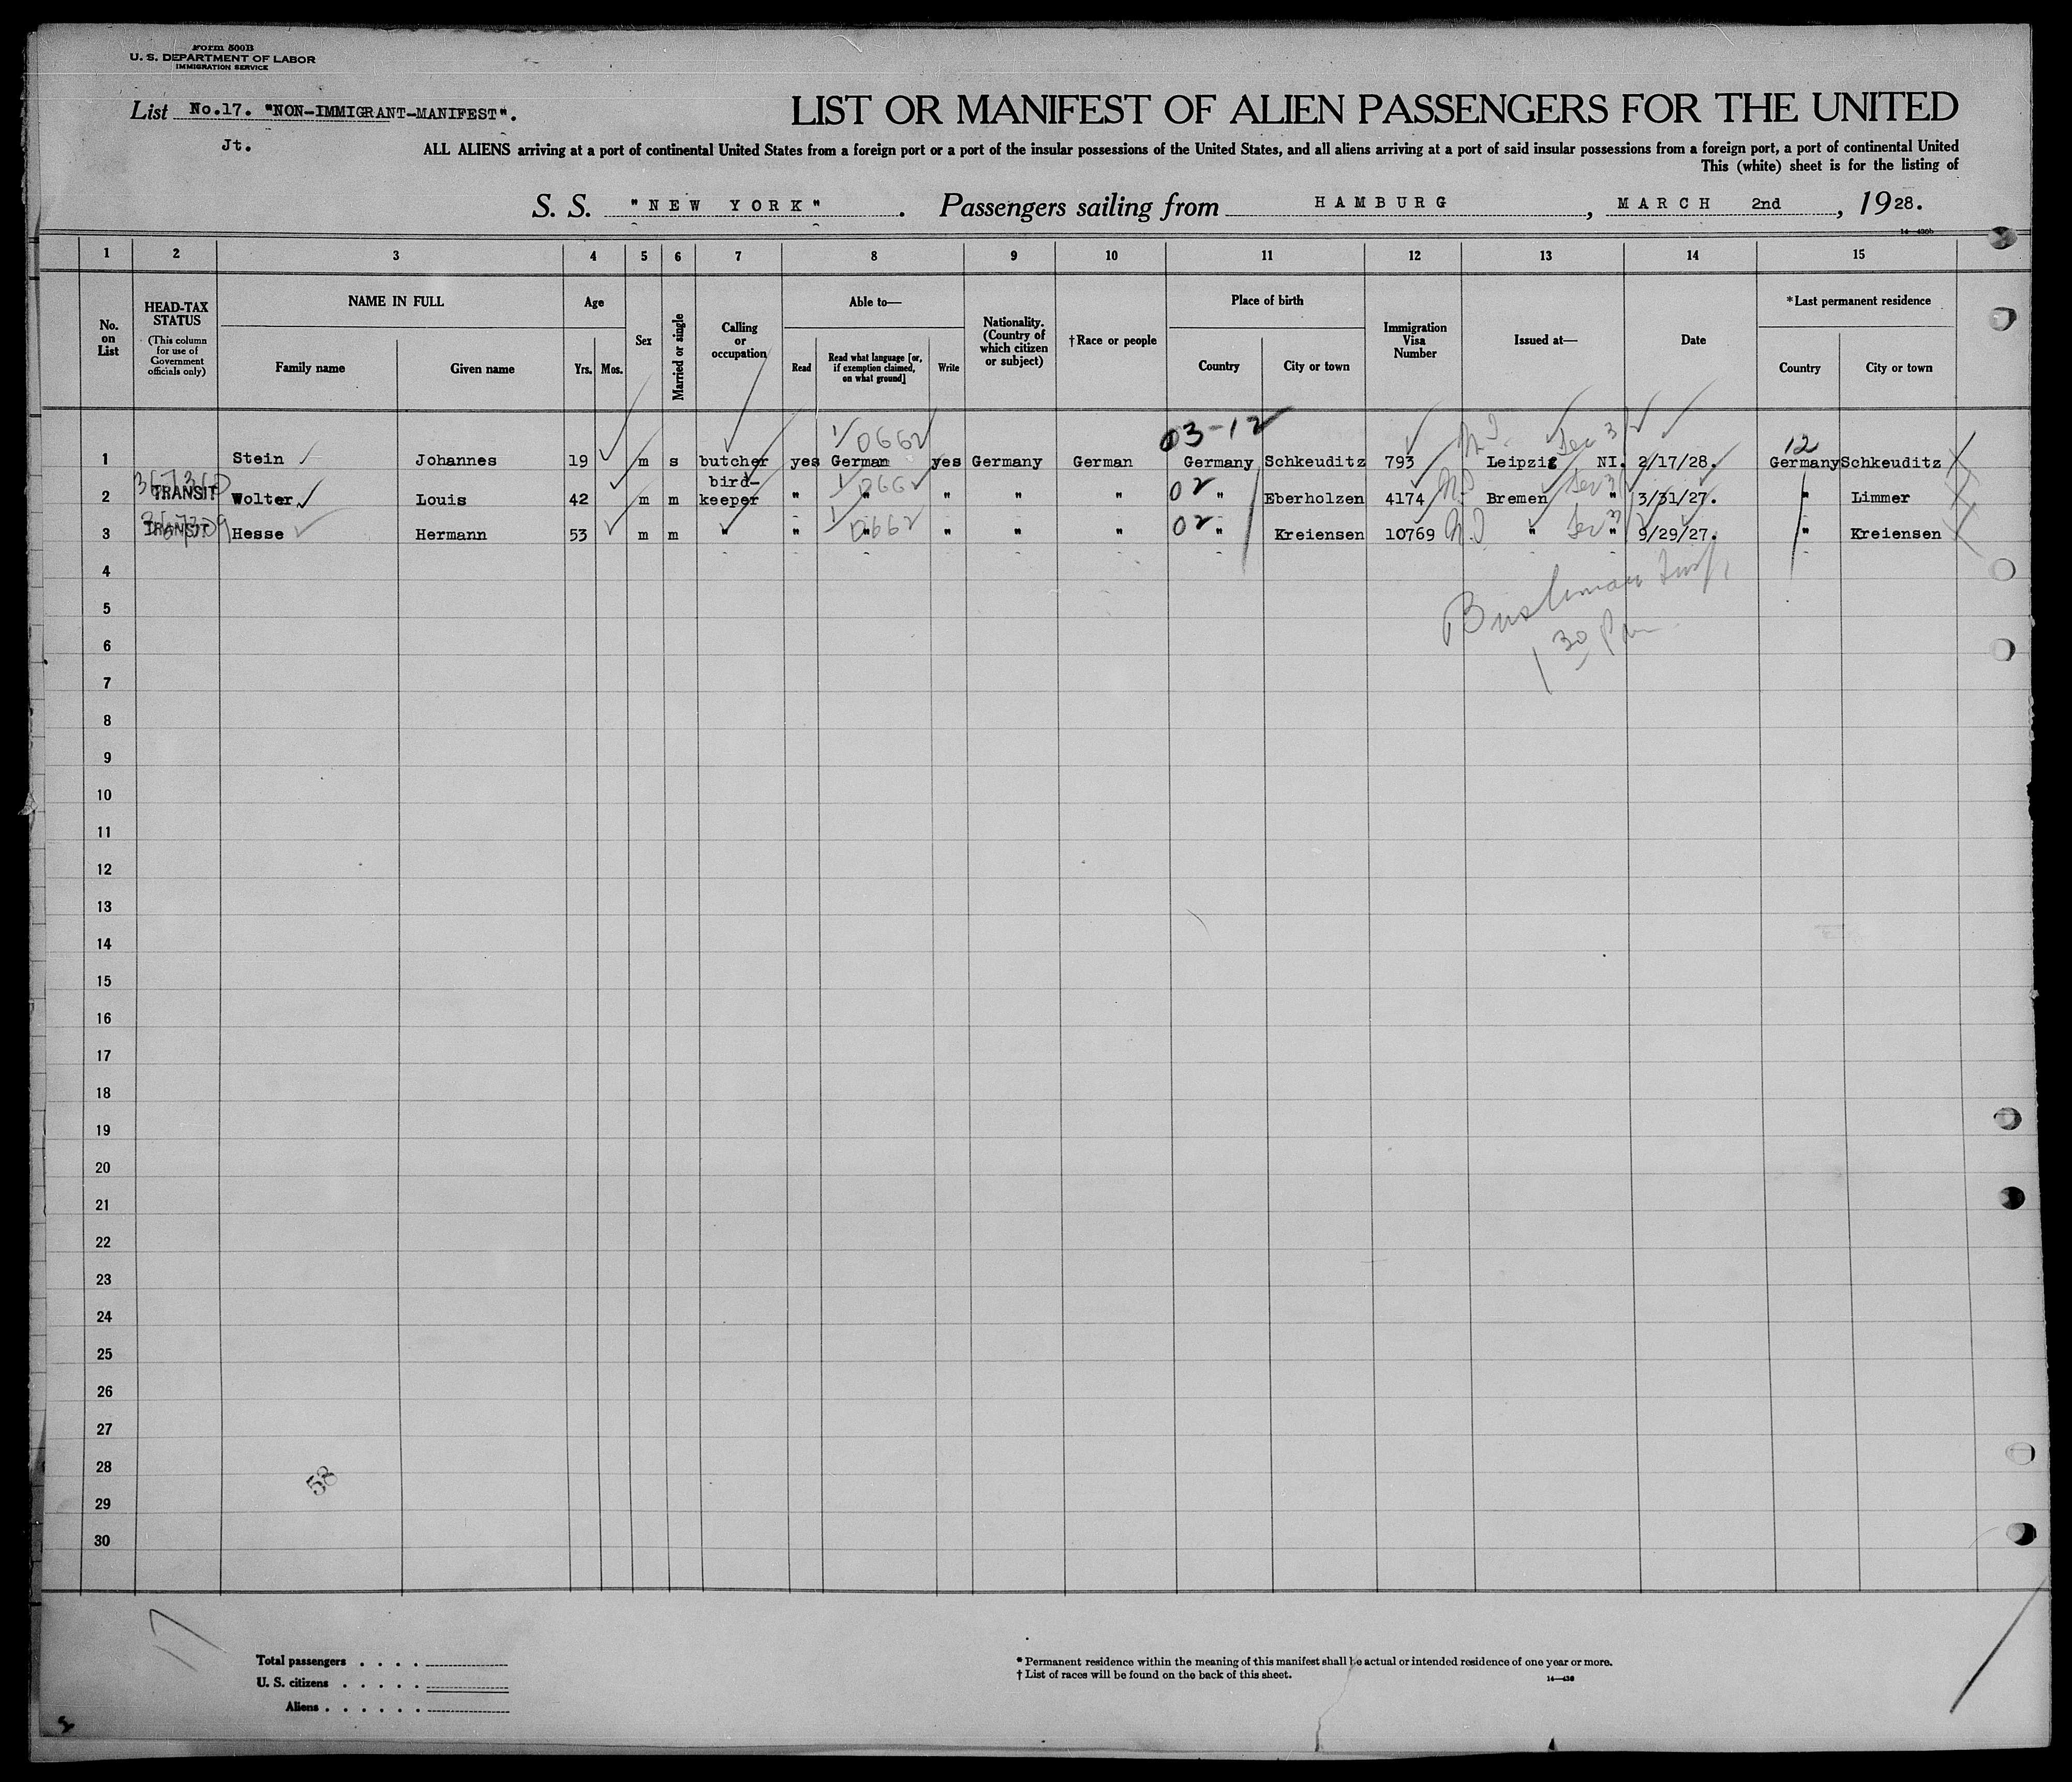 Form 500B
U. S. DEPARTMENT OF LABOR
IMMIGRATION SERVICE
List No.17. "NON-IMMIGRANT-MANIFEST".
Jt.
LIST OR MANIFEST OF ALIEN PASSENGERS FOR THE UNITED
ALL ALIENS arriving at a port of continental United States from a foreign port or a port of the insular possessions of the United States, and all aliens arriving at a port of said insular possessions from a foreign port, a port of continental United
This (white) sheet is for the listing of
S. S. "NEW YORK" . Passengers sailing from HAMBURG , MARCH 2nd , 1928.
14—430b
1 2 3 4 5 6 7 8 9 10 11 12 13 14 15
No. on List
HEAD-TAX STATUS
(This column for use of Government officials only)
NAME IN FULL
Family name Given name
Age
Yrs. Mos.
Sex
Married or single
Calling or occupation
Able to—
Read
Read what language [or, if exemption claimed, on what ground]
Write
Nationality. (Country of which citizen or subject)
†Race or people
Place of birth
Country City or town
Immigration Visa Number
Issued at—
Date
*Last permanent residence
Country City or town
03-12
0662
12
1 Stein Johannes 19 m s butcher yes German yes Germany German Germany Schkeuditz 793 Leipzig NI. 2/17/28. Germany Schkeuditz
2 TRANSIT Wolter Louis 42 m m bird-keeper " " " " " 02 " Eberholzen 4174 Bremen " 3/31/27. " Limmer
0662
3 TRANSIT Hesse Hermann 53 m m " " " " " " 02 " Kreiensen 10769 " " 9/29/27. " Kreiensen
0662
4
5
6
1 30 Pm
7
8
9
10
11
12
13
14
15
16
17
18
19
20
21
22
23
24
25
26
27
28
58
29
30
17
Total passengers . . . .
U. S. citizens . . . . .
Aliens . . . . . .
* Permanent residence within the meaning of this manifest shall be actual or intended residence of one year or more.
† List of races will be found on the back of this sheet.
14—430